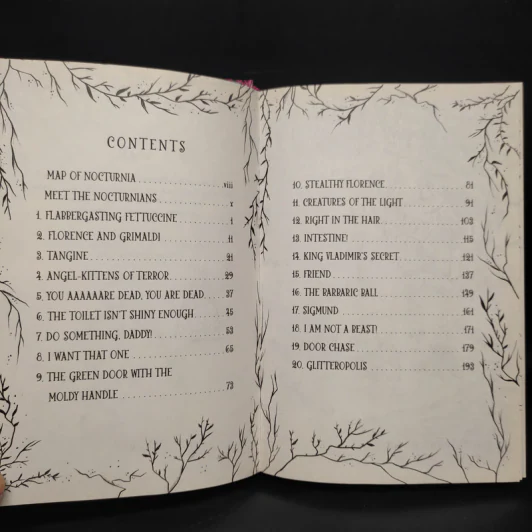 CONTENTS
MAP OF NOCTURNIA viii
MEET THE NOCTURNIANS x
1. FLABBERGASTING FETTUCCINE 1
2. FLORENCE AND GRIMALDI 11
3. TANGINE 21
4. ANGEL-KITTENS OF TERROR 29
5. YOU AAAAARE DEAD, YOU ARE DEAD 37
6. THE TOILET ISN'T SHINY ENOUGH 45
7. DO SOMETHING, DADDY! 53
8. I WANT THAT ONE 65
9. THE GREEN DOOR WITH THE
MOLDY HANDLE 73
10. STEALTHY FLORENCE 81
11. CREATURES OF THE LIGHT 91
12. RIGHT IN THE HAIR 103
13. INTESTINE! 115
14. KING VLADIMIR'S SECRET 121
15. FRIEND 137
16. THE BARBARIC BALL 149
17. SIGMUND 161
18. I AM NOT A BEAST! 171
19. DOOR CHASE 179
20. GLITTEROPOLIS 193